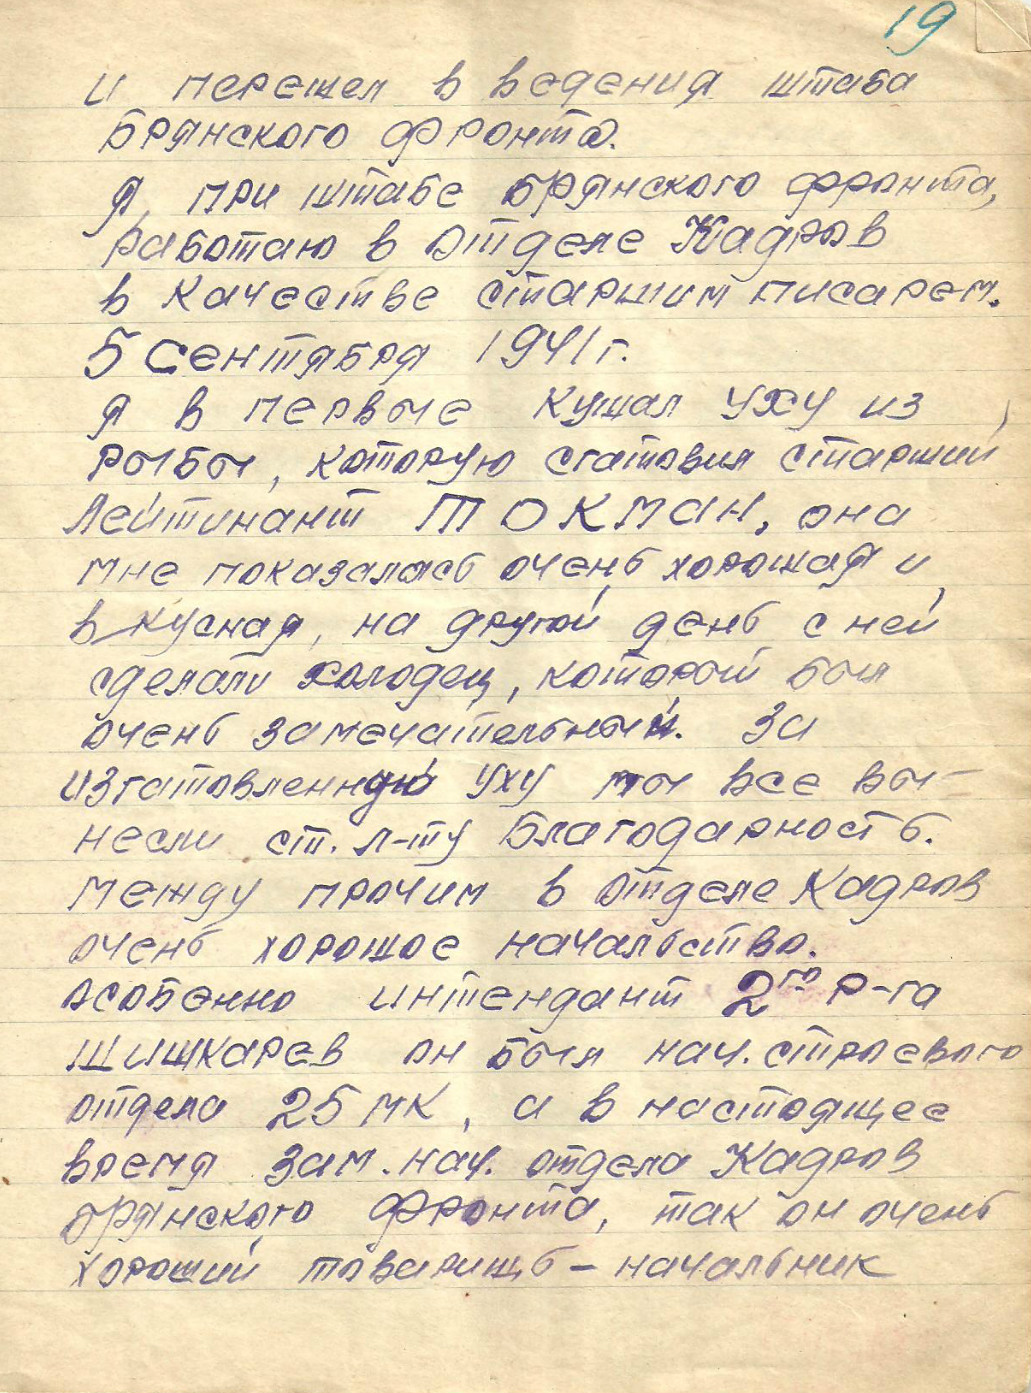 19
и перешел в ведения штаба
Брянского фронта.
Я, при штабе Брянского фронта,
работаю в отделе Кадров
в качестве старшим писарем.
5 Сентября 1941 г.
я в первые кушал уху из
рыбы, которую сгатовил старший
Лейтинант ТОКМАН, она
мне показалась очень хорошая и
вкусная, на другой день с ней
сделали холодец, который был
очень замечательный. За
изгатовленную уху мы все вы-
несли ст. л-ту Благодарность.
Между прочим в отделе Кадров
очень хорошое начальство.
особенно интендант 2го р-га
Шишкарев он был нач. строевого
отдела 25 МК, а в настоящее
время зам. нач. отдела Кадров
Брянского Фронта, так он очень
хороший товарищь – начальник